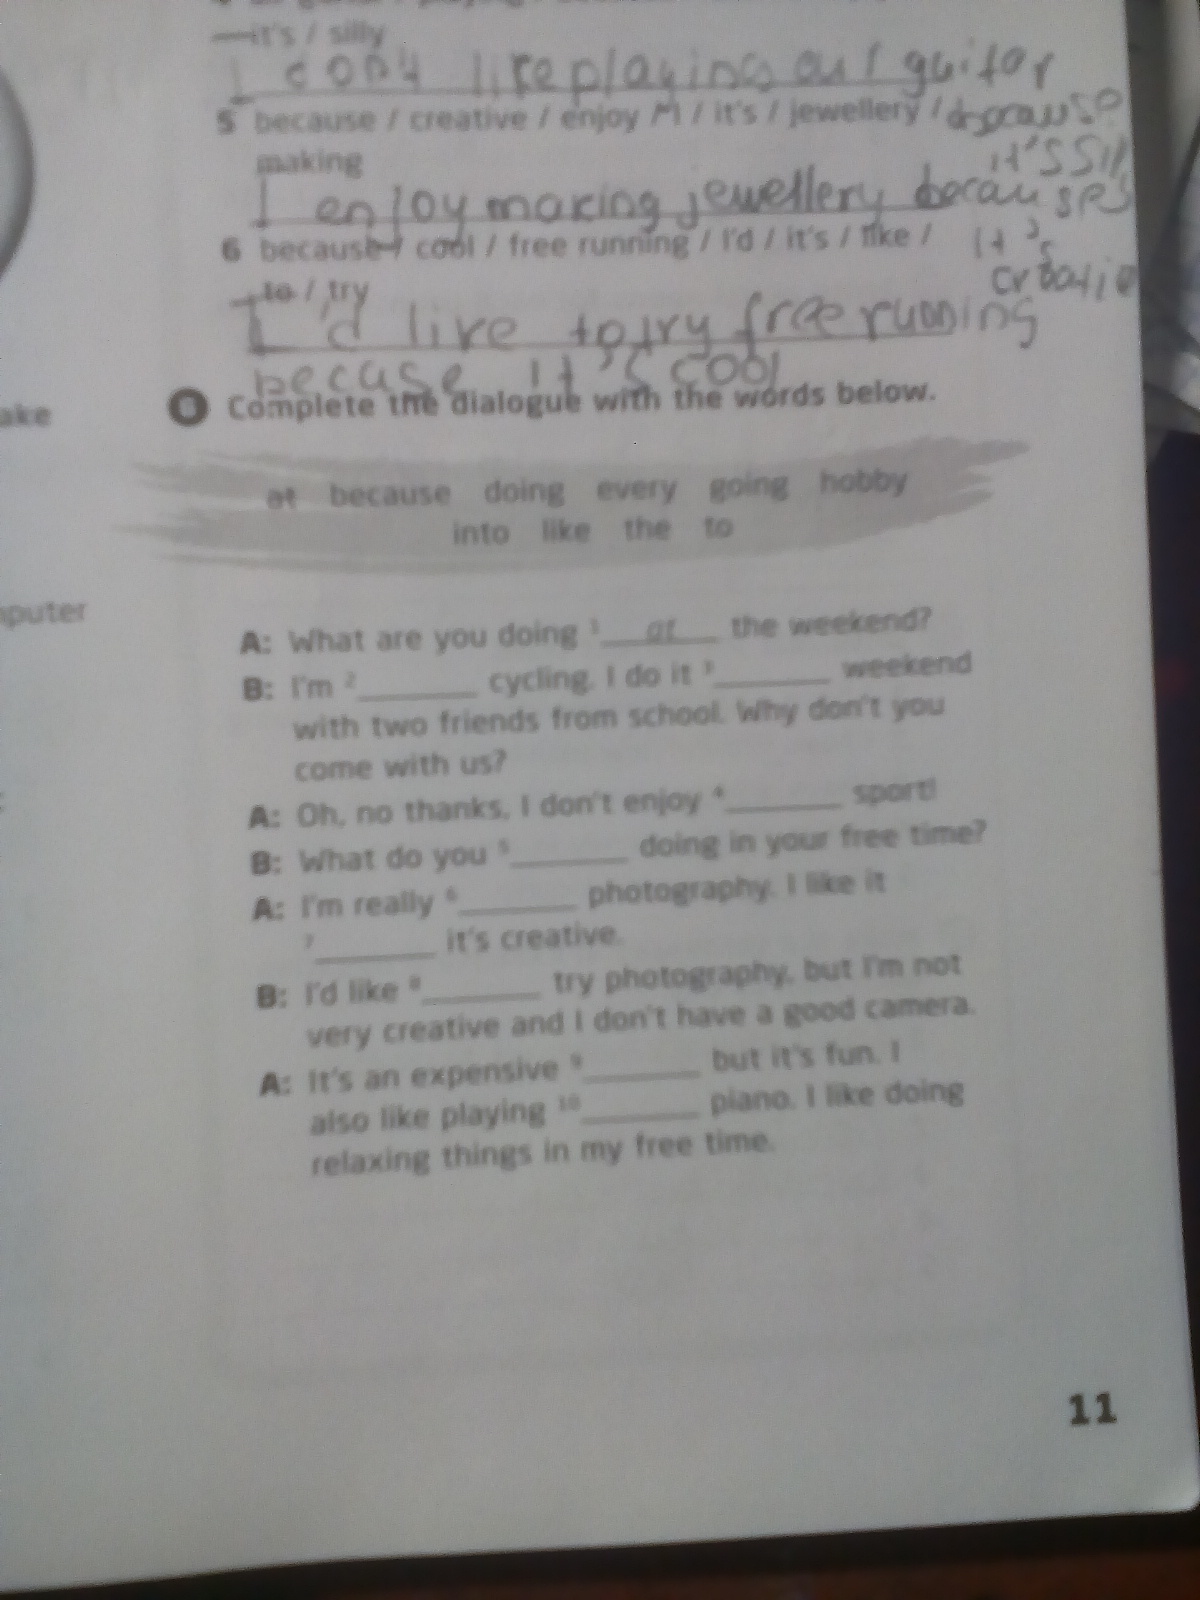 it's / silly
I don't like playing guitar
5 because / creative / enjoy / it's / jewellery /
because
making
it's
I enjoy making jewellery because
6 because / cool / free running / I'd / it's / like /
It's
to / try
I'd like to try free running
becuse it's cool
ake
8 Complete the dialogue with the words below.
at because doing every going hobby
into like the to
puter
A: What are you doing 1 at the weekend?
B: I'm 2_______ cycling. I do it 3_______ weekend
with two friends from school. Why don't you
come with us?
A: Oh, no thanks, I don't enjoy 4_______ sport!
B: What do you 5_______ doing in your free time?
A: I'm really 6_______ photography. I like it
7_______ it's creative.
B: I'd like 8_______ try photography, but I'm not
very creative and I don't have a good camera.
A: It's an expensive 9_______ but it's fun. I
also like playing 10_______ piano. I like doing
relaxing things in my free time.
11